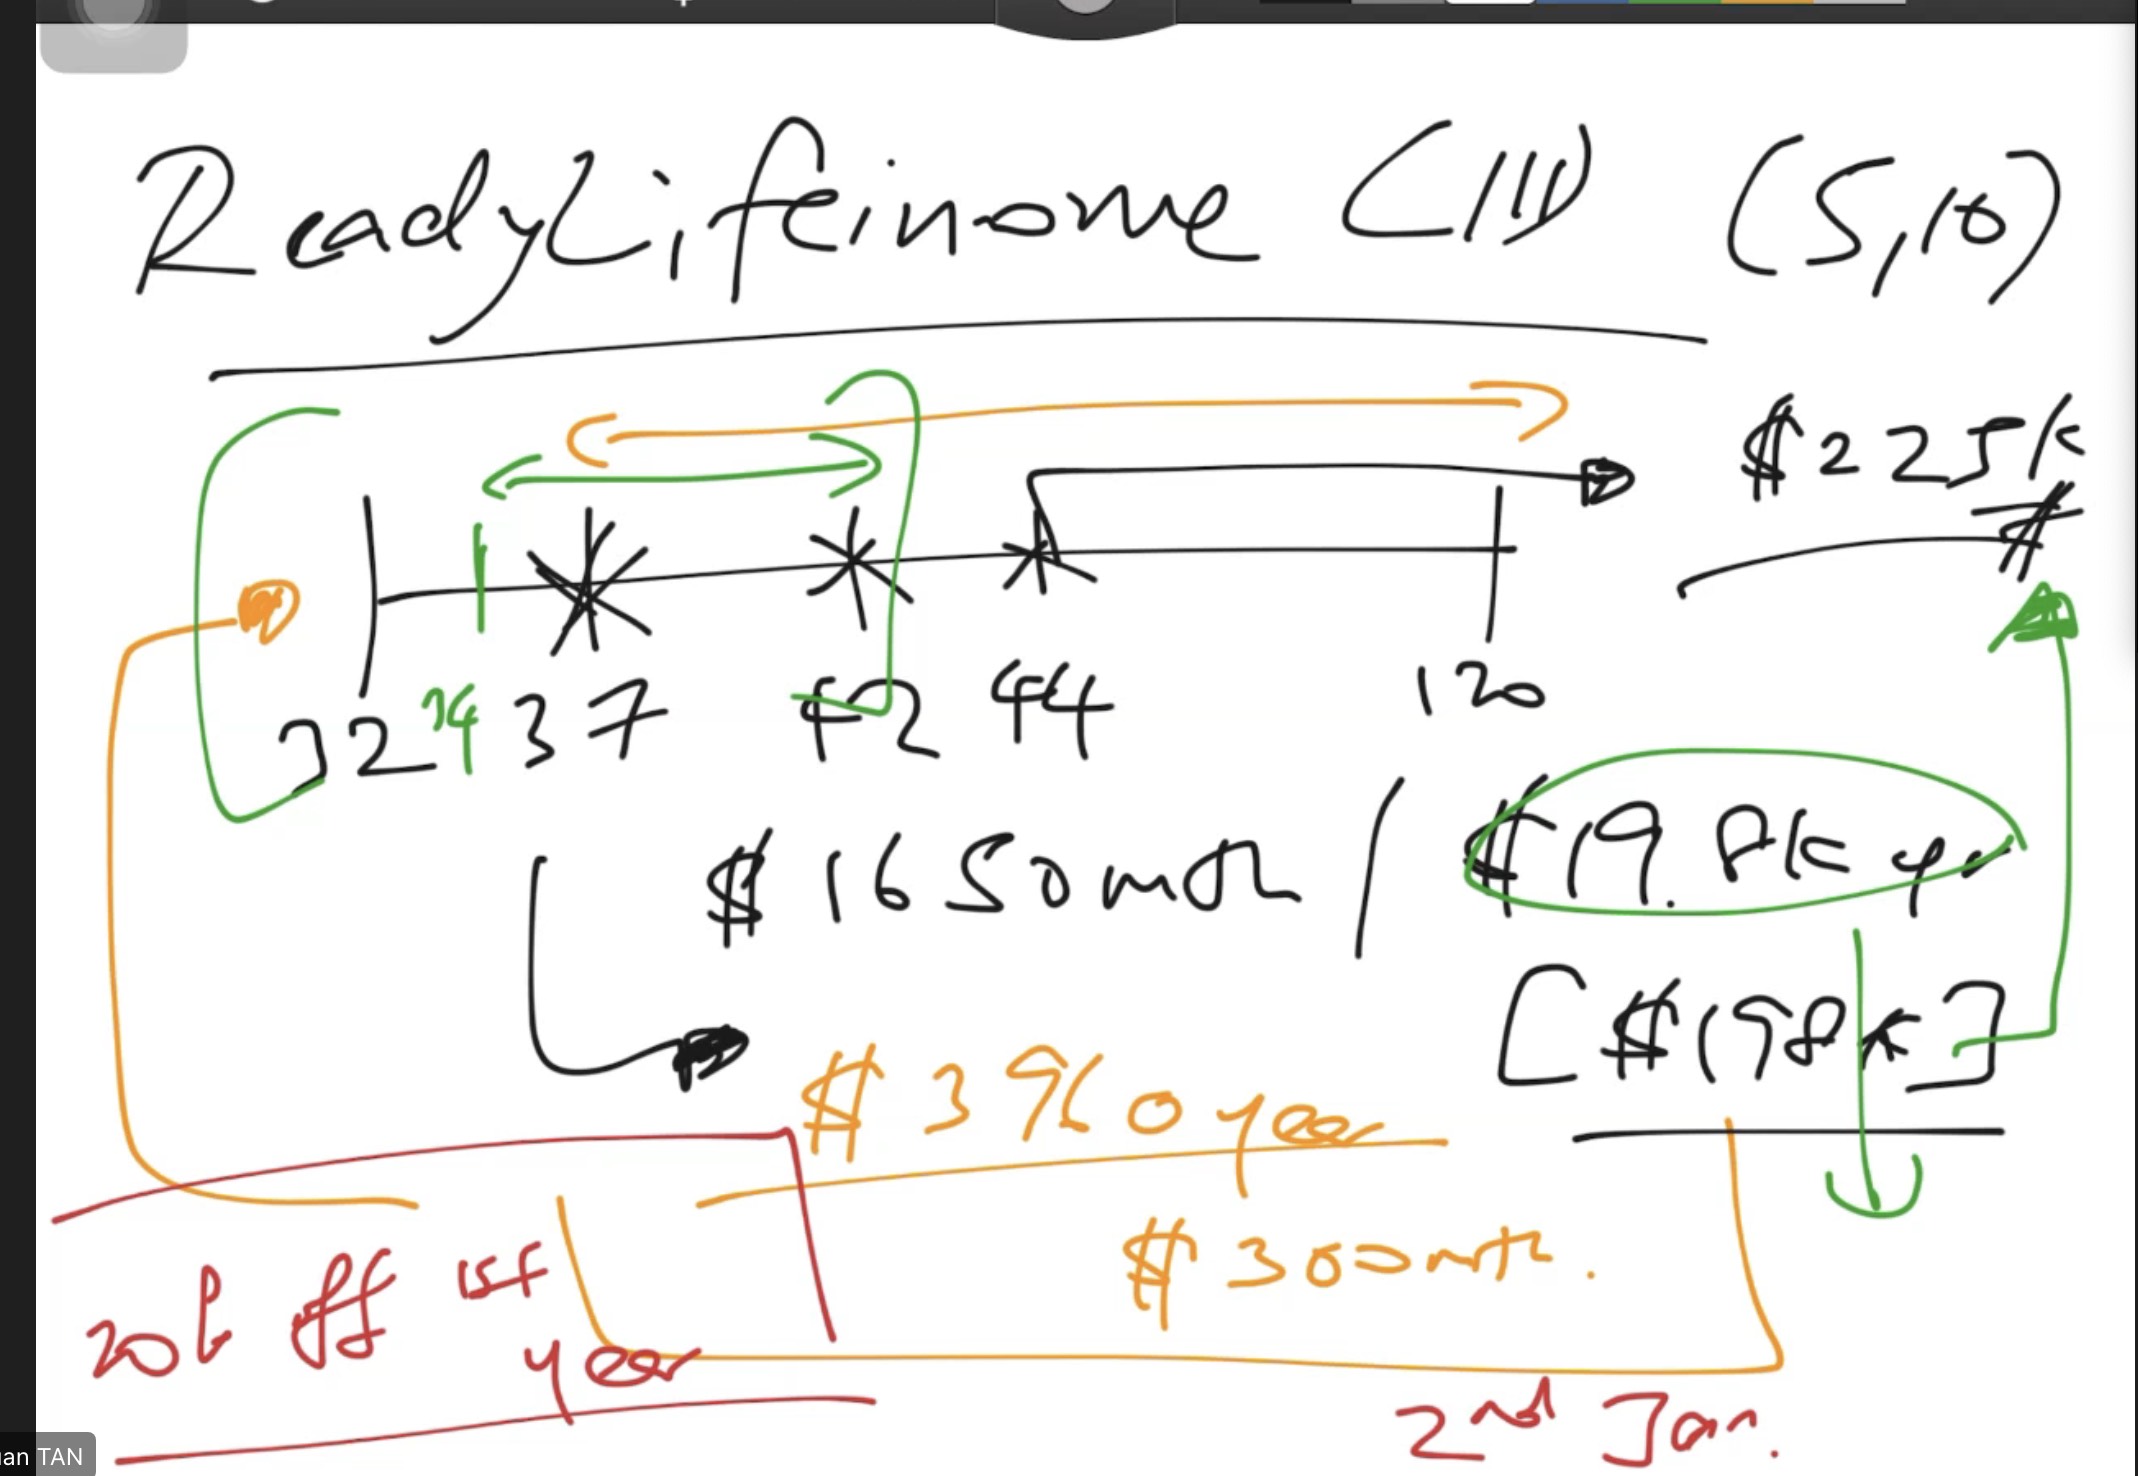 ReadyLifeinome (III) (5,10)
$225k
32 34 37 42 44 120
$1650mth / $19.8k yr
[$198k]
$3960 year
$300mth.
20% off 1st
year
2nd Jan.
uan TAN